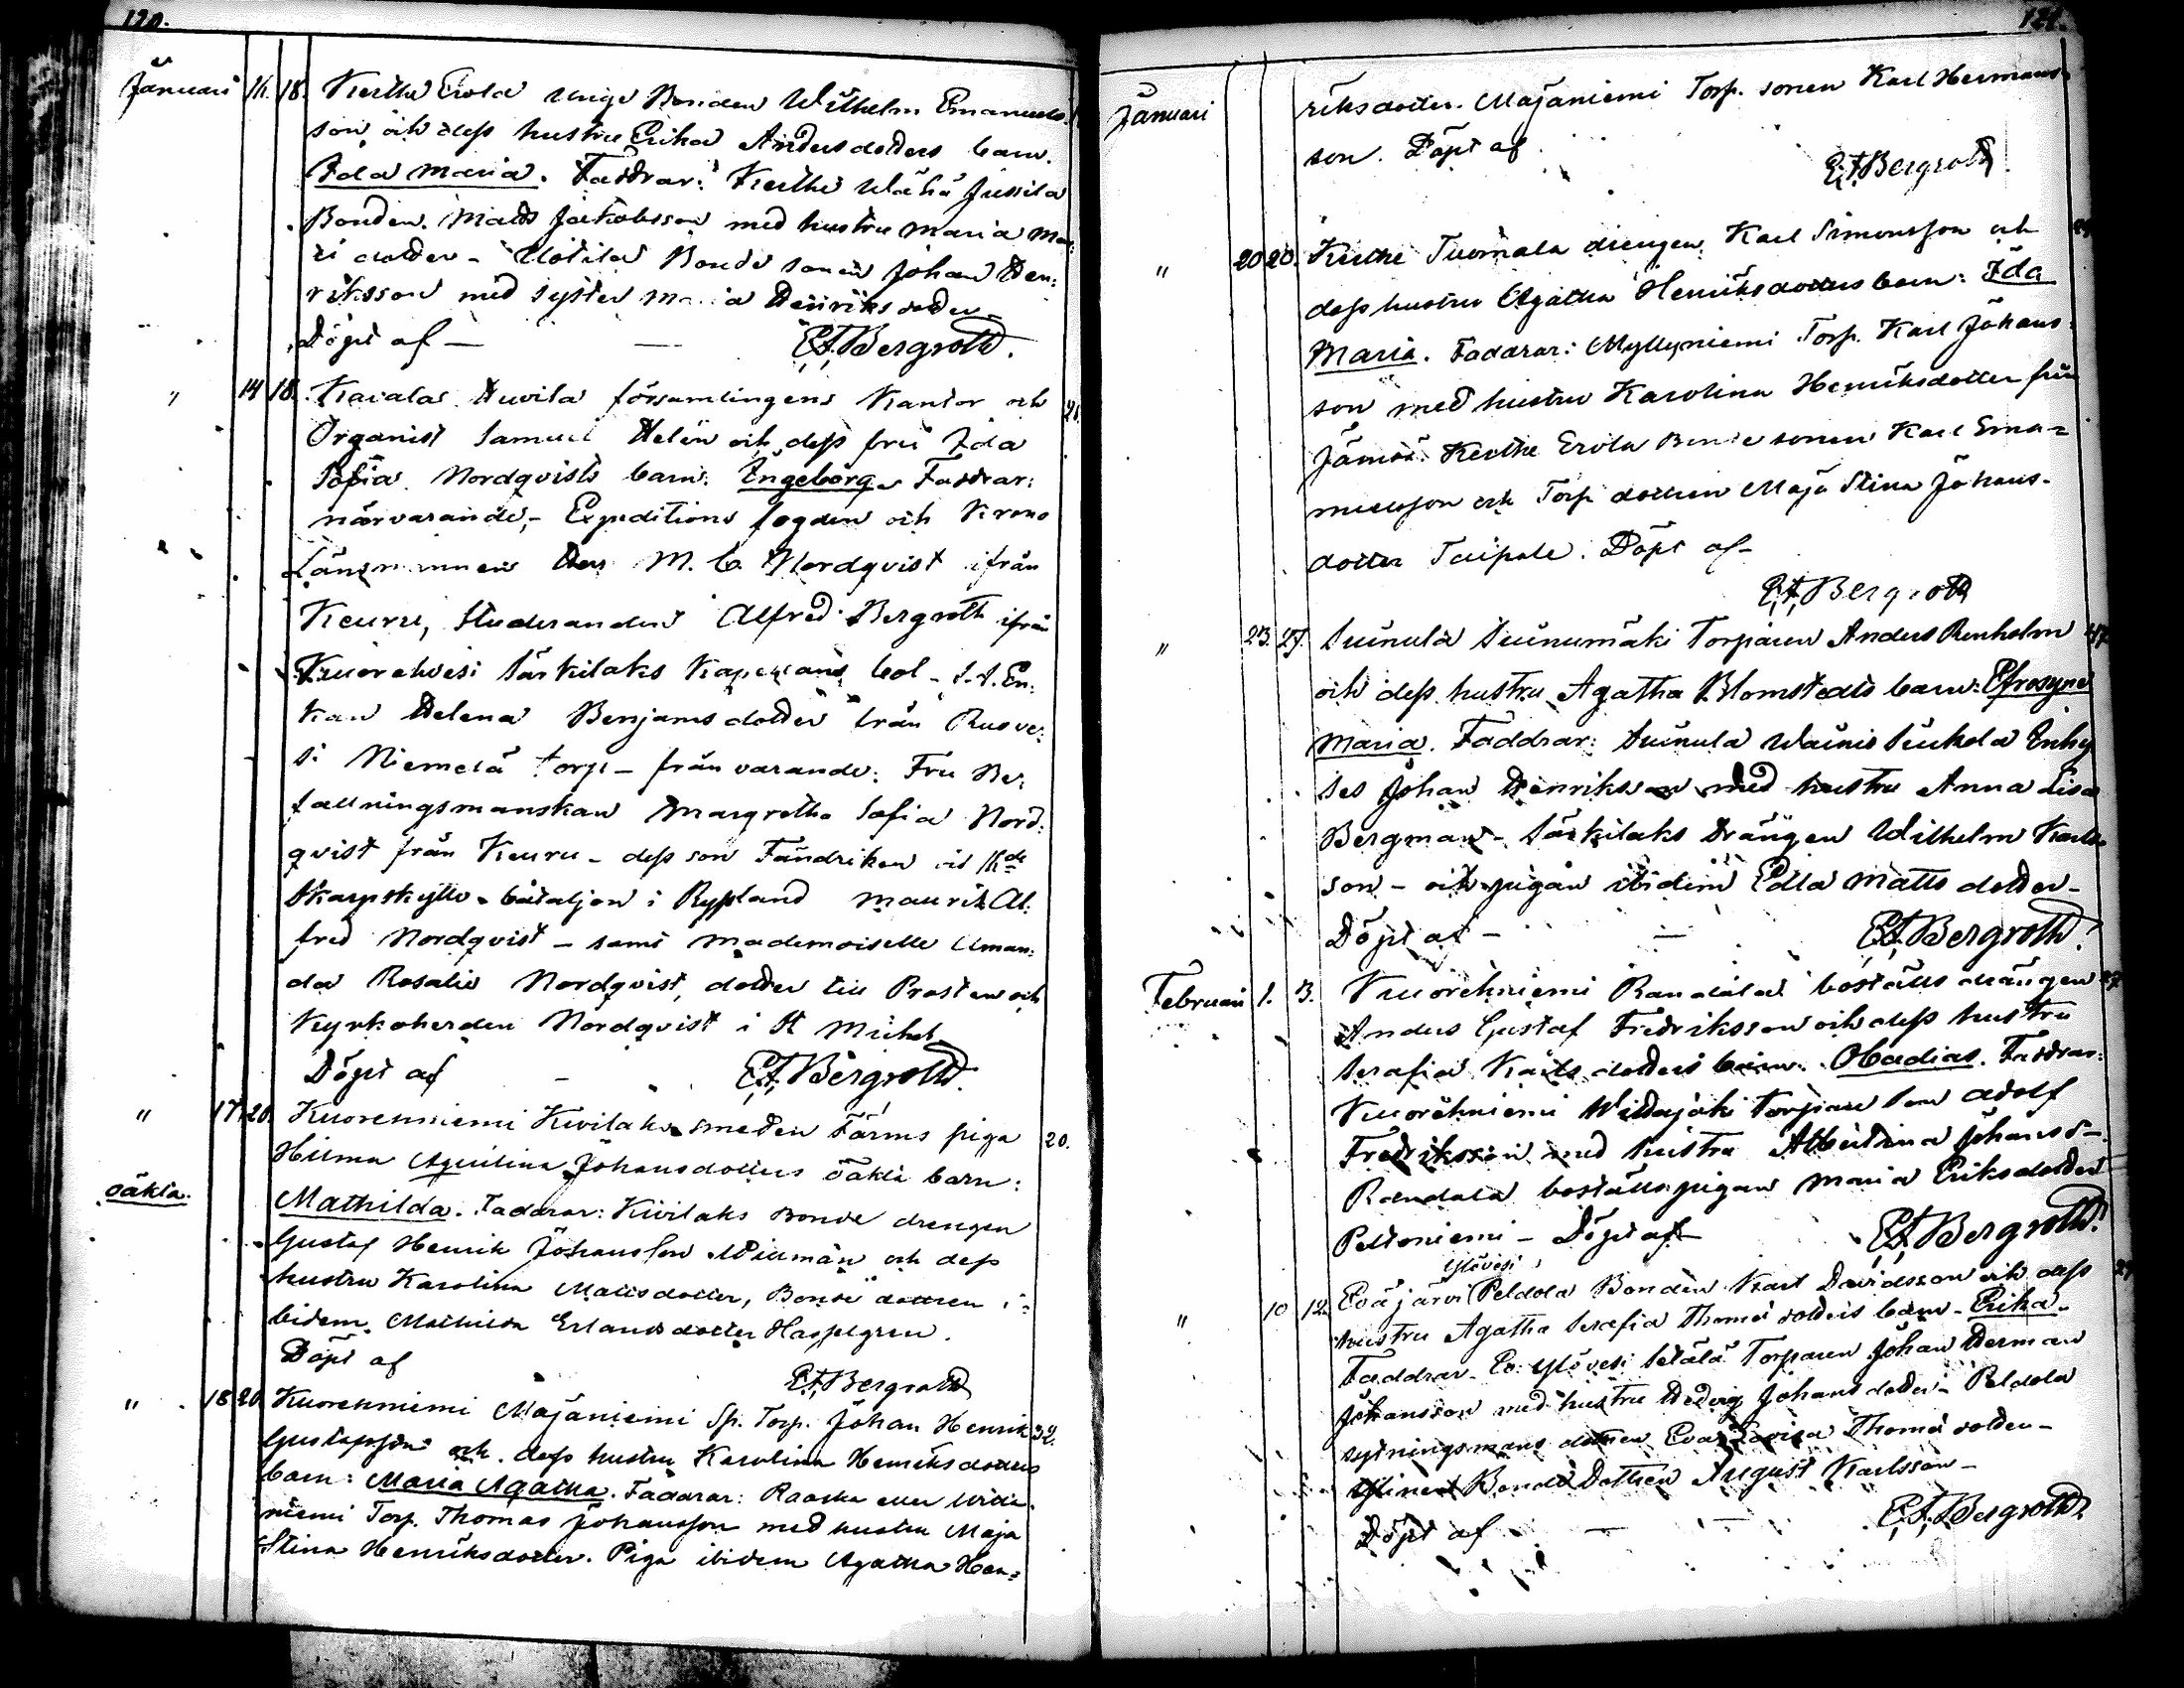 120.
Januari 16. 18. Kertte Erola unge Bonden Wilhelm Emanuels
son och dess hustru Erika Andersdotters barn.
Ida Maria. Faddrar: Kertte Wähä Jussila
Bonden Matts Jakobsson med hustru Maria Mar:
ei dotter - Uotila Bonde sonen Johan Hen:
riksson med syster Maria Henriksdotter -
Döpt af — — E.F. Bergroth.
" 14 18. Karala Huvila församlingens Kantor och
Organist Samuel Helén och dess fru Ida
Sofia Nordqvists barn: Engeborg. Faddrar:
närvarande, - Expeditions fogden och Krono
Länsmannen Herr M. C. Nordqvist ifrån
Keuru, Studeranden Alfred Bergroth ifrån
Kuorehvesi Särkilaks Kapellans bol - S.S. En:
kan Helena Benjamsdotter från Rusve:
si Niemelä torp - frånvarande: Fru Be:
fallningsmanskan Margretha Sofia Nord:
qvist från Keuru - dess son Fändriken vid 16de
Skarpskytte-bataljon i Ryssland Maurits Al:
fred Nordqvist - samt Mademoiselle Aman:
da Rosalie Nordqvist, dotter till Prosten och
Kyrkoherden Nordqvist i St Michel
Döpt af - E.F. Bergroth.
" 17. 20. Kuorehniemi Kivilaks smeden Färms piga 20.
Hilma Aqvilina Johansdotters oäkta barn:
oäkta.
Mathilda. Faddrar: Kivilaks Bonde drengen
Gustaf Henrik Johansson Willman och dess
hustru Karolina Mattsdotter, Bonde dottren i-
bidem Mathilda Erlandsdotter Hasselgren.
Döpt af
E.F. Bergroth
" 18 20 Kuorehniemi Majaniemi Sp. Torp. Johan Henrik 32.
Gustafsson och dess hustru Karolina Henriksdotters
barn: Maria Agatha. Faddrar: Raaska eller
niemi Torp. Thomas Johansson med hustru Maja
Stina Henriksdotter. Piga ibidem Agatha Hen=
121.
Januari riksdotter. Majaniemi Torp. sonen Karl Hermans
son. Döpt af
E.F. Bergroth.
" 20 20. Kertte Tuomala drengen Karl Simonsson och
dess hustru Agatha Henriksdotters barn: Ida
Maria. Faddrar: Myllyniemi Torp. Karl Johans
son med hustru Karolina Henriksdotter från
Jämsä. Kertte Erola Bonde sonen Karl Ema=
nuelsson och Torp dottren Maja Stina Johans-
dotter Taipale. Döpt af -
E.F. Bergroth
" 23. 25. Suinula Suinumäki Torparen Anders Renholm 47
och dess hustru Agatha Blomstedts barn: Efrosyne
Maria. Faddrar: Suinula Wainio Seukola Enhy
ses Johan Henriksson med hustru Anna Lisa
Bergman - Särkilaks Drängen Wilhelm Karls-
son - och pigan ibidem Edla Mattsdotter -
Döpt af - — E.F. Bergroth.
Februari 1. 3. Kuorehniemi Randala boställs drängen 27
Anders Gustaf Fredriksson och dess hustru
Serafia Karlsdotters barn. Obadias. Faddrar:
Kuorehniemi Widajoki Torpare Son Adolf
Fredriksson med hustru Albertina Johansd-
Randala boställs pigan Maria Eriksdotter
Peltoniemi - Döpt af - E.F. Bergroth.
Ylövesi
" 10 12. Eväjärvi Peldola Bonden Karl Davidsson och dess 29
hustru Agatha Serafia Thomædotters barn - Erika.
Faddrar. Ev. Ylövesi Setälä Torparen Johan Herman
Johansson med hustru Hedvig Johansdotter - Peldola
sytningsmans dottren Eva Lovisa Thomædotter -
Ylinen Bonde Dottren August Karlsson -
Döpt af — — E.F. Bergroth